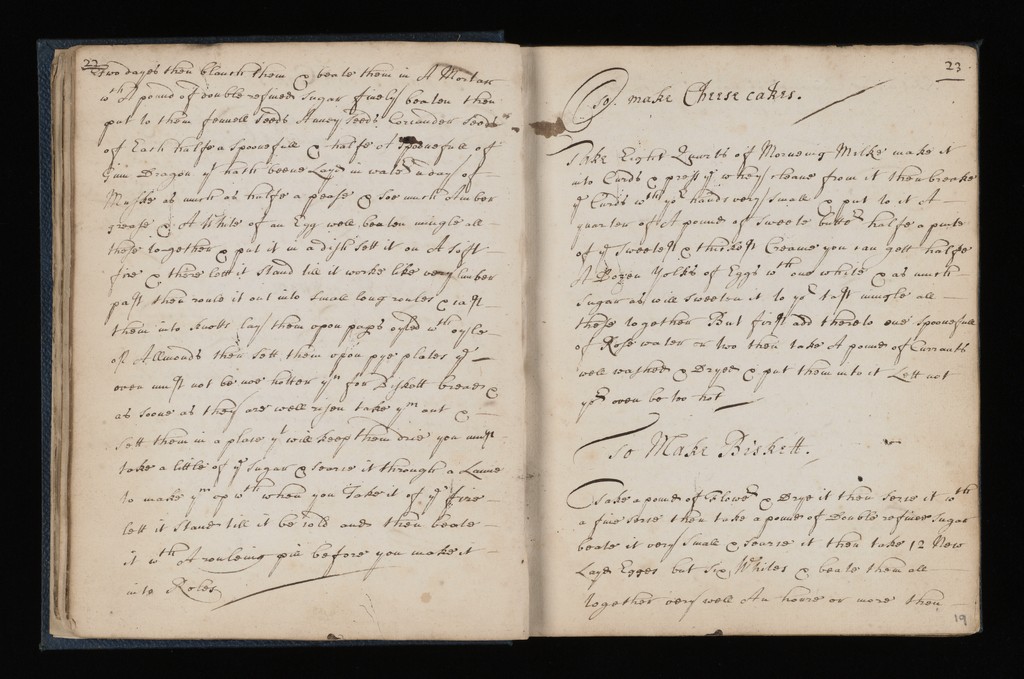 22
Two dayes then blanch them & beate them in A Mortar
wth A pound of double refined Sugar finely beaten then
put to them fennell seeds Annyseeds Coriander Seeds
of Each halfe a spoonefull & halfe A spoonefull of
Gum Dragon yt hath beene Layd in water a day of
Muske as much as halfe a pease & soe much Amber
greese & A White of an Egg well beaten mingle all
these together & put it in a dish sett it on A soft
fire & there lett it stand till it worke like very limber
past then roule it out into small long roules & cast
them into knotts lay them opon papr oyled wth oyle
of Allmonds then sett them opon pye plates ye
oven must not be noe hotter yn for Biskett bread &
as soone as they are well risen take ym out &
sett them in a place yt will keep them drie you must
take a little of ye sugar & searce it through a Lawne
to make ym op wth when you Take it of ye fire
lett it stand till it be cold and then beate
it wth A rouleing pin before you make it
into Roles
23
To make Cheese cakes.
Take Eight Quarts of Morneing Milke make it
into Curds & press ye whey cleane from it then breake
ye Curds wth yor hands very small & put to it A
quarter of A pound of sweete butter halfe a pinte
of ye sweetest & thickest Creame you can gett halfe
A Dozen Yolks of Eggs wth one white & as much
sugar as will sweeten it to yor tast mingle all
these together But first add thereto one spoonefull
of Rose water or two then take A pound of Currants
well washed & Dryed & put them into it Lett not
yor oven be too hot
To Make Biskett.
Take a pound of Flower & Drye it then serse it wth
a fine serse then take a pound of Double refined sugar
beate it very small & searse it then take 12 New
Layd Egges but Six Whites & beate them all
together very well An houre or more then
19